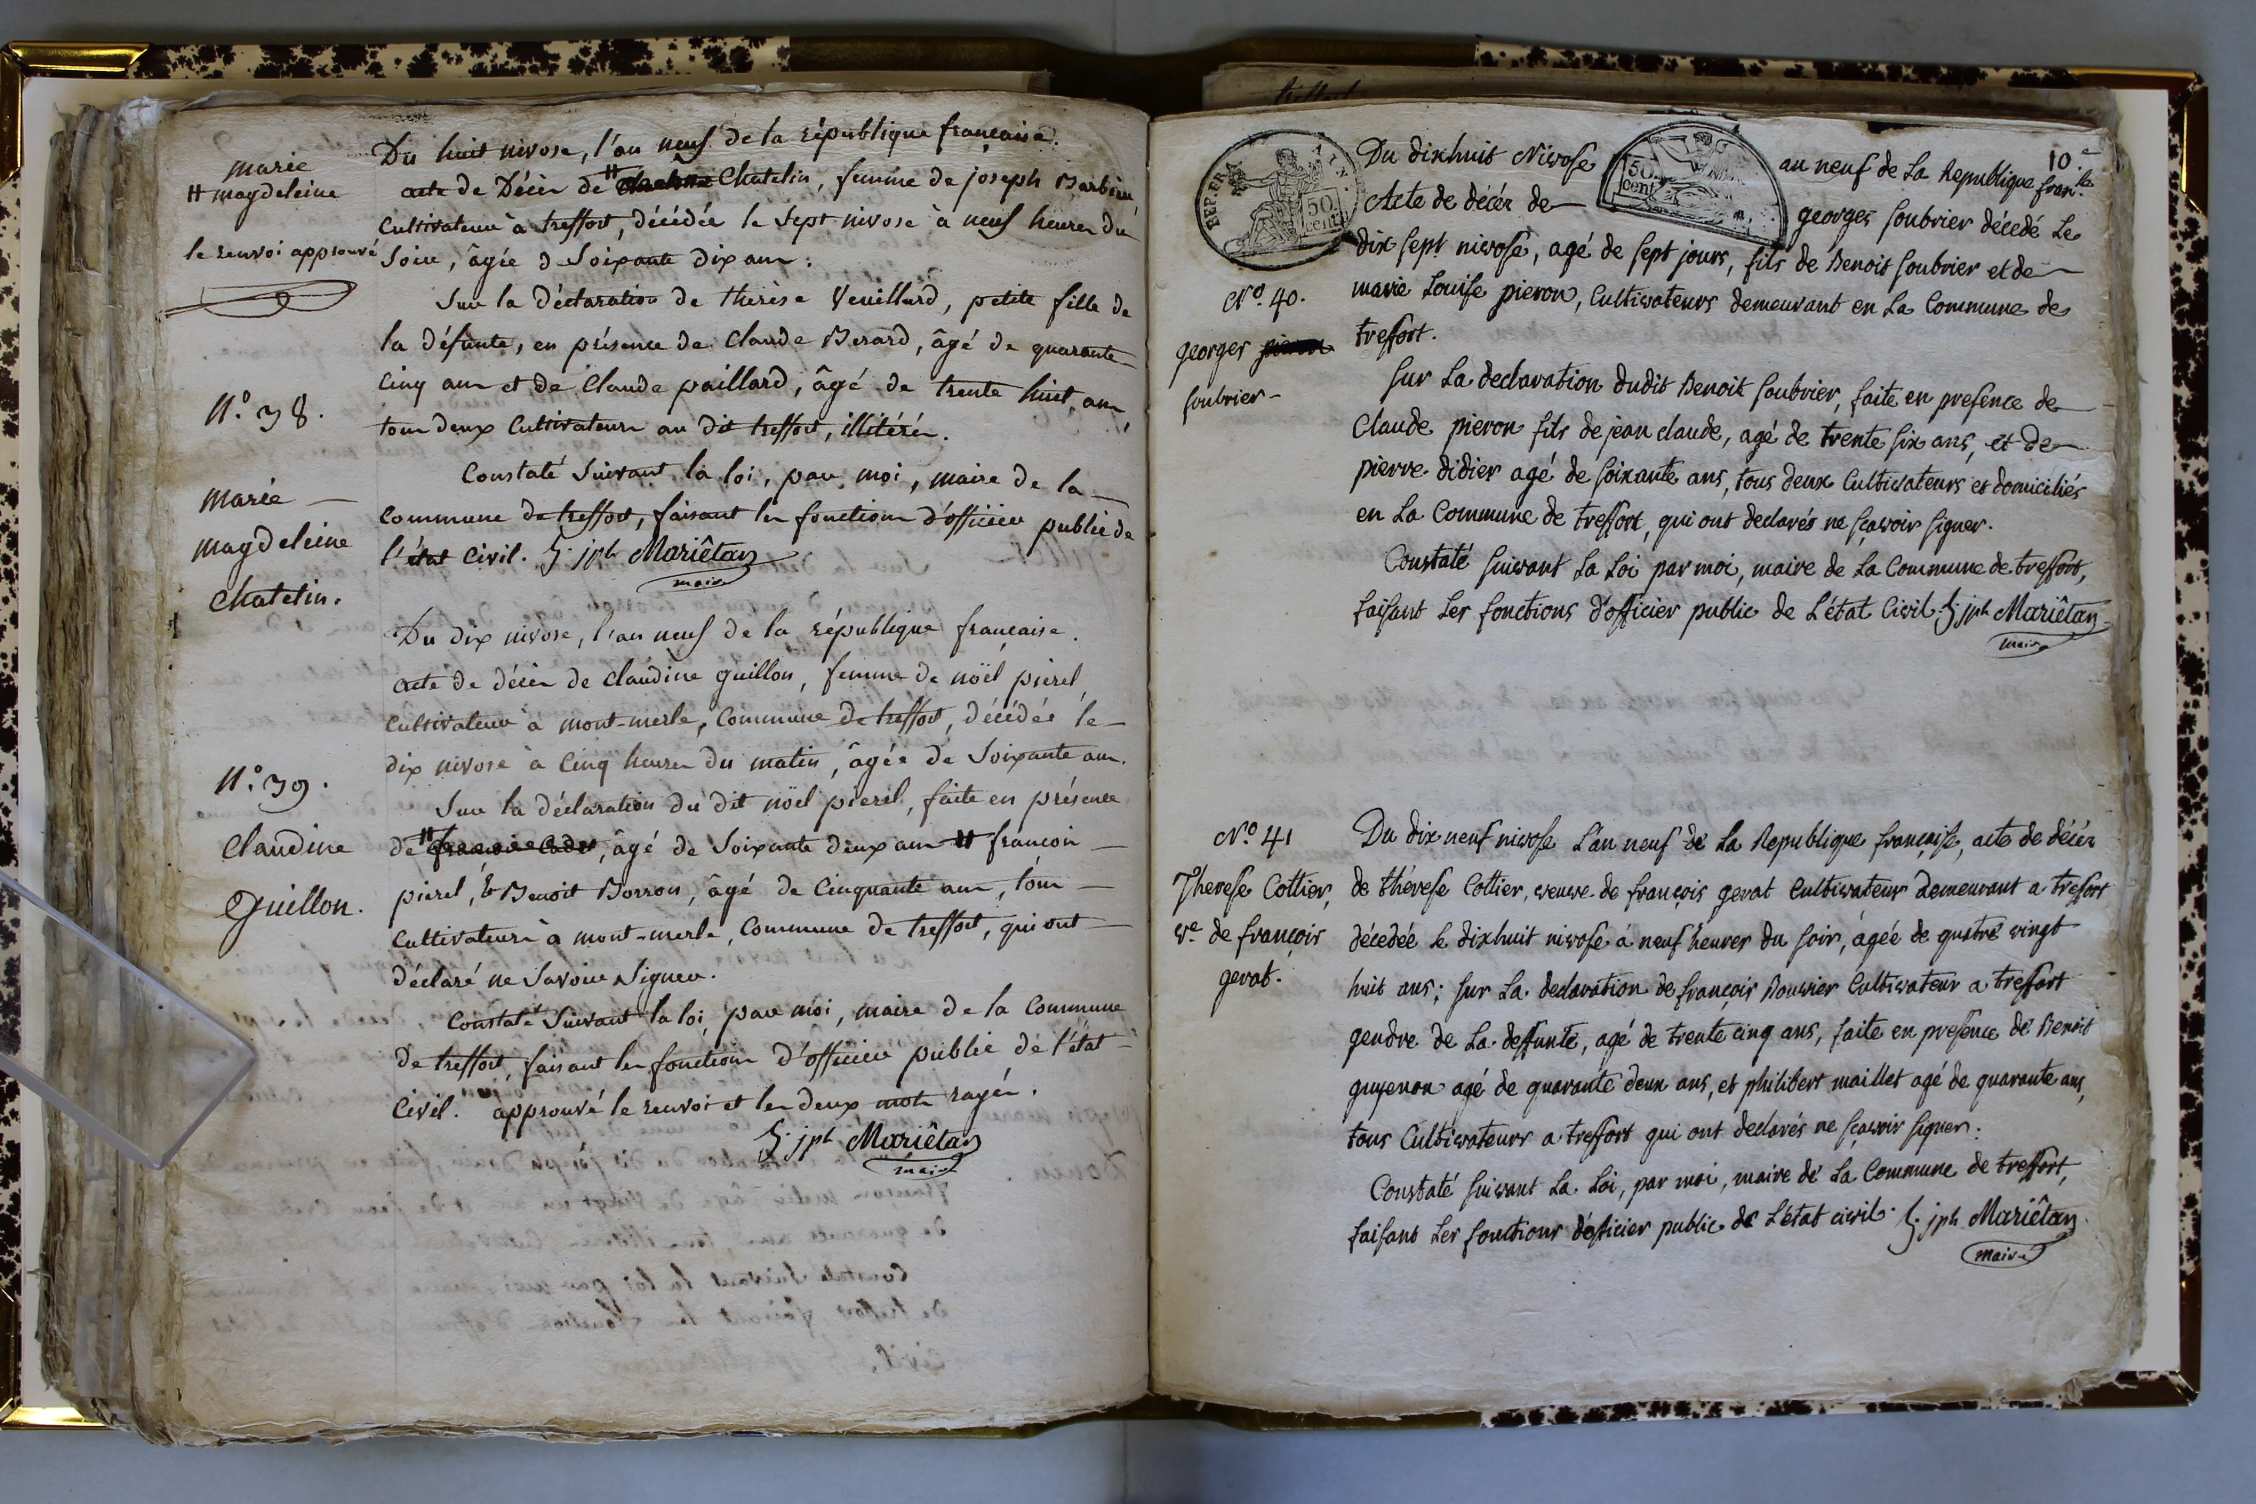 marie
# magdeleine
le renvoi approuvé
N.o 38.
marie
magdeleine
Chatelin.
N.o 39.
Claudine
Guillon.
Du huit nivose, l'an neuf de la république française.
acte de Décès de # Chatelin, femme de joseph Barbier,
cultivateur à treffort, décédée le sept nivose à neuf heures du
soir, âgée de soixante dix ans.
Sur la déclaration de thérèse Veuillard, petite fille de
la défunte, en présence de Claude Berard, âgé de quarante
cinq ans et de Claude paillard, âgé de trente huit ans,
tous deux Cultivateurs au dit treffort, illitérés.
Constaté suivant la loi, par moi, maire de la
commune de treffort, faisant les fonctions d'officier public de
l'état Civil. jph Mariêtan
maire
Du dix nivose, l'an neuf de la république française.
acte de décès de Claudine guillon, femme de noël pierel,
cultivateur à mont-merle, Commune de treffort, décédée le
dix nivose à Cinq heures du matin, âgée de soixante ans.
Sur la déclaration du dit noël pierel, faite en présence
de # françois, âgé de soixante deux ans # françois
pierel, & Benoit Borron, âgé de Cinquante ans, tous
cultivateurs à mont-merle, Commune de treffort, qui ont
déclaré ne savoir signer.
Constaté suivant la loi, par moi, maire de la Commune
de treffort, faisant les fonctions d'officier public de l'état
Civil. approuvé le renvoi et les deux mots rayés.
jph Mariêtan
maire
10.e
REP. FRA.
50
cent
50
cent
Du dixhuit Nivose an neuf de La Republique fran.se
Acte de décès de georges soubrier décedé Le
dix sept nivose, agé de sept jours, fils de Benoit soubrier et de
marie Louise pieron, Cultivateurs demeurant en La Commune de
treffort.
N.o 40.
georges pieron
soubrier
Sur La declaration dudit Benoit soubrier, faite en presence de
Claude pieron fils de jean claude, agé de trente six ans, et de
pierre didier agé de soixante ans, tous deux Cultivateurs et domiciliés
en La Commune de treffort, qui ont declarés ne sçavoir signer.
Constaté suivant La Loi par moi, maire de La Commune de treffort,
faisant Les fonctions d'officier public de L'état Civil. jph Mariêtan
maire
N.o 41
Therese Cottier,
v.e de françois
gerat.
Du dix neuf nivose L'an neuf de La Republique française, acte de décès
de therese Cottier, veuve de françois gerat Cultivateur demeurant a treffort
décedée le dixhuit nivose á neuf heures du soir, ágée de quatre vingt
huit ans; sur La declaration de françois Bouvier Cultivateur a treffort
gendre de La deffunte, agé de trente cinq ans, faite en presence de Benoit
guyenon agé de quarante deux ans, et philibert maillet agé de quarante ans,
tous Cultivateurs a treffort qui ont declarés ne sçavoir signer.
Constaté suivant La Loi, par moi, maire de La Commune de treffort,
faisant Les fonctions d'officier public de L'état civil. jph Mariêtan
maire